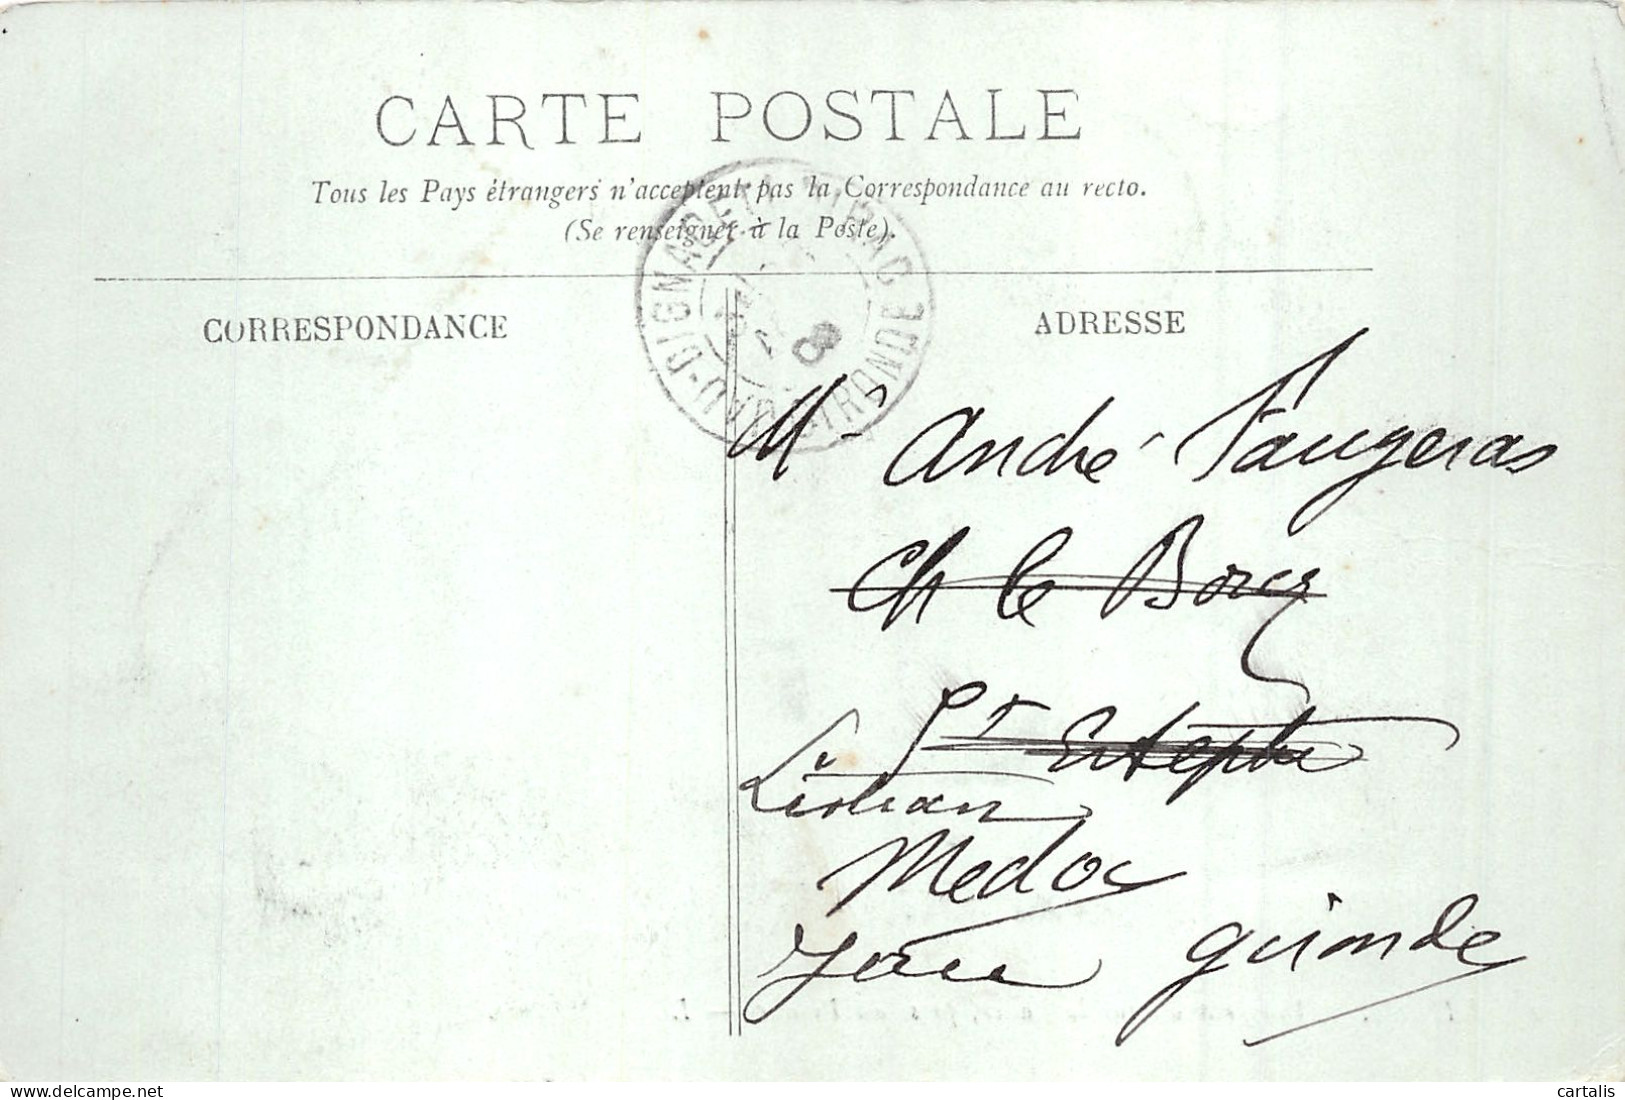 CARTE POSTALE
Tous les Pays étrangers n'acceptent pas la Correspondance au recto.
(Se renseigner à la Poste).
CORRESPONDANCE
ADRESSE
DIGNAC GIRONDE
Mr André Faugeras
Ch le Boscq
St Estephe
Medoc
Gironde
cartalis